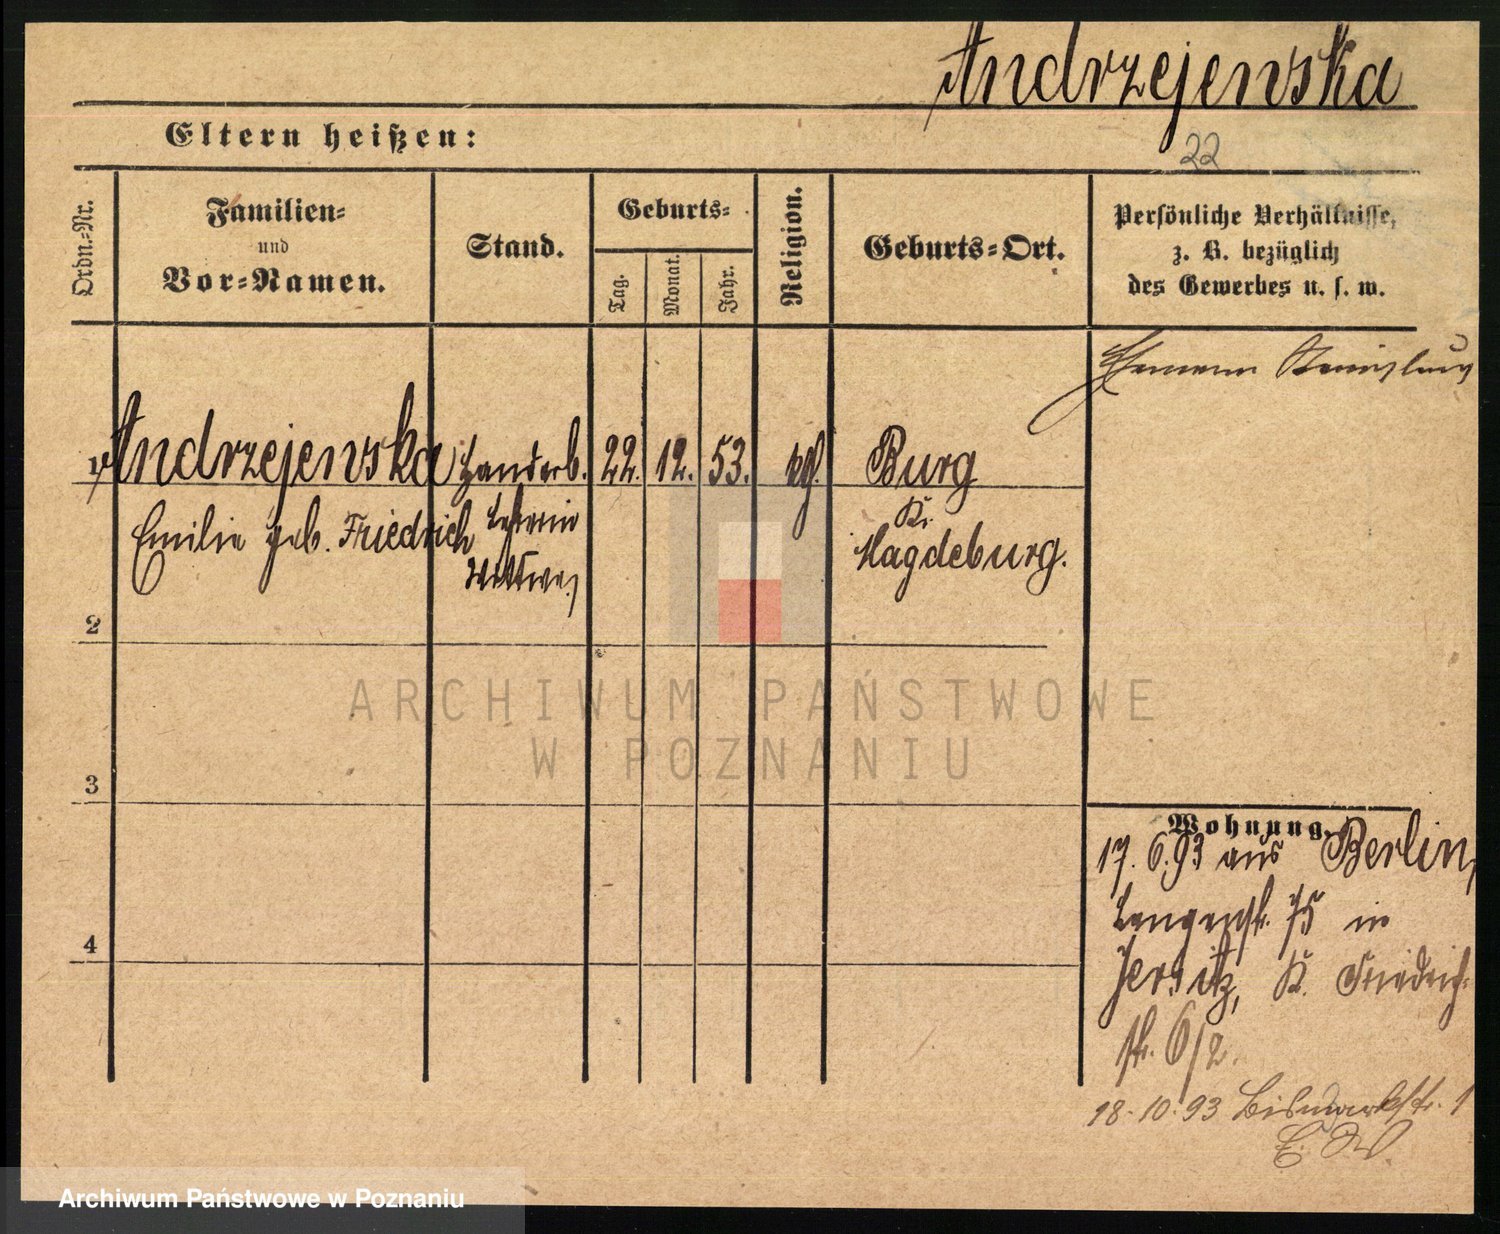 Andrzejewska
Eltern heißen:
22
Ordn.-Nr.
Familien-
und
Vor-Namen.
Stand.
Geburts-
Tag.
Monat.
Jahr.
Religion.
Geburts-Ort.
Persönliche Verhältnisse,
z. B. bezüglich
des Gewerbes u. s. w.
Ehemann Stanislaus
1 Andrzejewska Handarb. 22. 12. 53. Burg
Emilie geb. Friedrich Lehrerin Kr.
Wittwe Magdeburg.
2
3
4
Wohnung.
17. 6. 93 aus Berlin,
Langestr. 75 in
Jersitz, K. Friedrich-
str. 6/2.
18. 10. 93 Bismarckstr. 1
ARCHIWUM PAŃSTWOWE
W POZNANIU
Archiwum Państwowe w Poznaniu